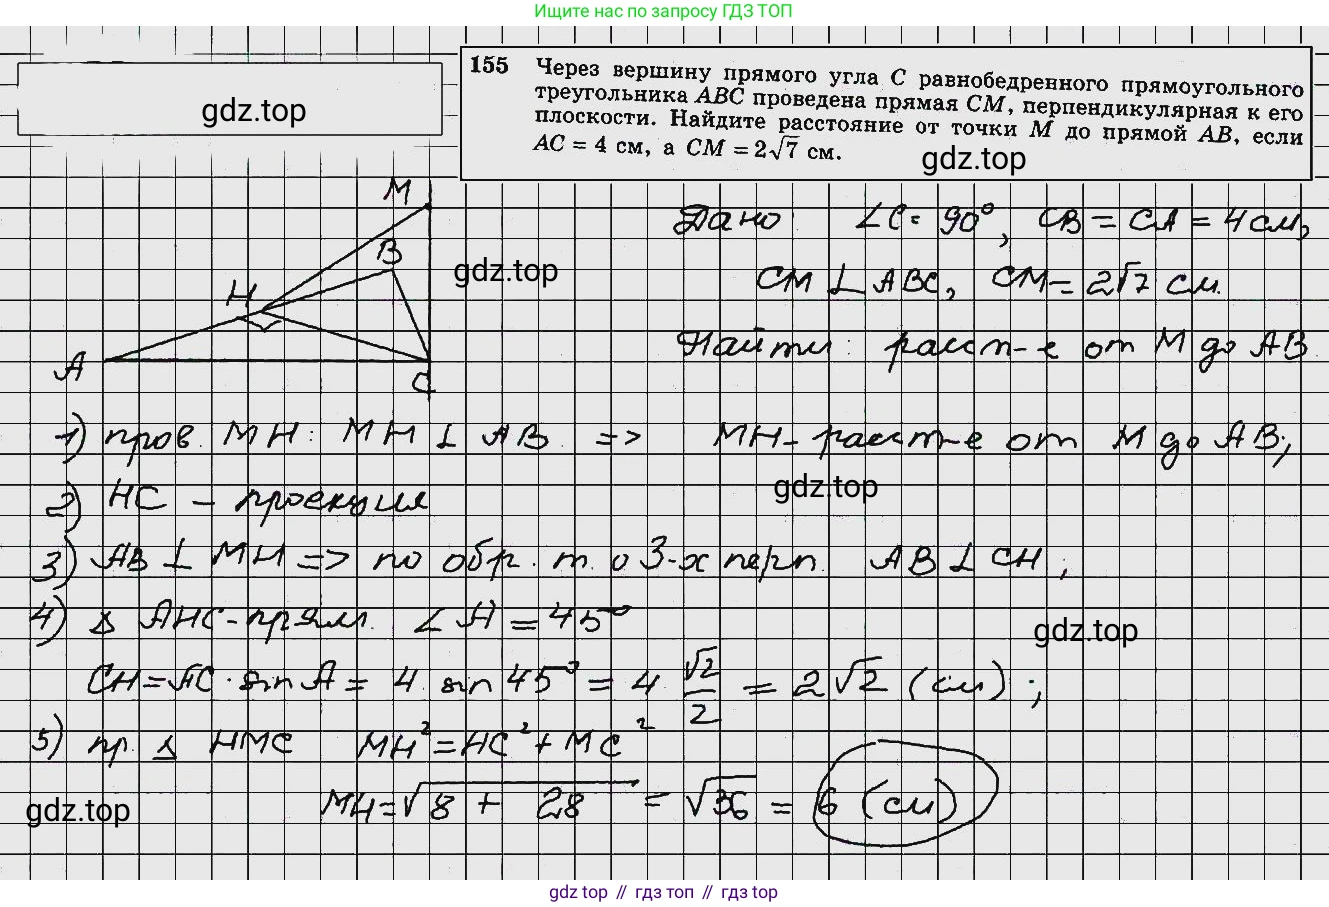 Ищите нас по запросу ГДЗ ТОП
gdz.top
155 Через вершину прямого угла C равнобедренного прямоугольного
треугольника ABC проведена прямая CM, перпендикулярная к его
плоскости. Найдите расстояние от точки M до прямой AB, если
AC = 4 см, а CM = 2√7 см.
gdz.top
M
B
H
A
C
gdz.top
Дано: ∠C = 90°, CB = CA = 4 см,
CM ⊥ ABC, CM = 2√7 см.
Найти: расст-е от M до AB
1) пров. MH: MH ⊥ AB => MH - расст-е от M до AB;
gdz.top
2) HC - проекция
3) AB ⊥ MH => по обр. т. о 3-х перп. AB ⊥ CH;
4) Δ AHC - прям. ∠A = 45°
gdz.top
CH = AC · sin A = 4 sin 45° = 4 √2/2 = 2√2 (см);
5) пр. Δ HMC MH² = HC² + MC²
gdz.top
MH = √8 + 28 = √36 = 6 (см)
gdz top // гдз топ // gdz top